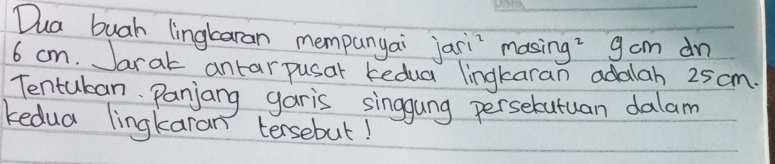 Dua buah lingkaran mempunyai jari² masing² 9 cm dn
6 cm. Jarak antar pusat kedua lingkaran adalah 25 cm.
Tentukan. Panjang garis singgung persekutuan dalam
kedua lingkaran tersebut!